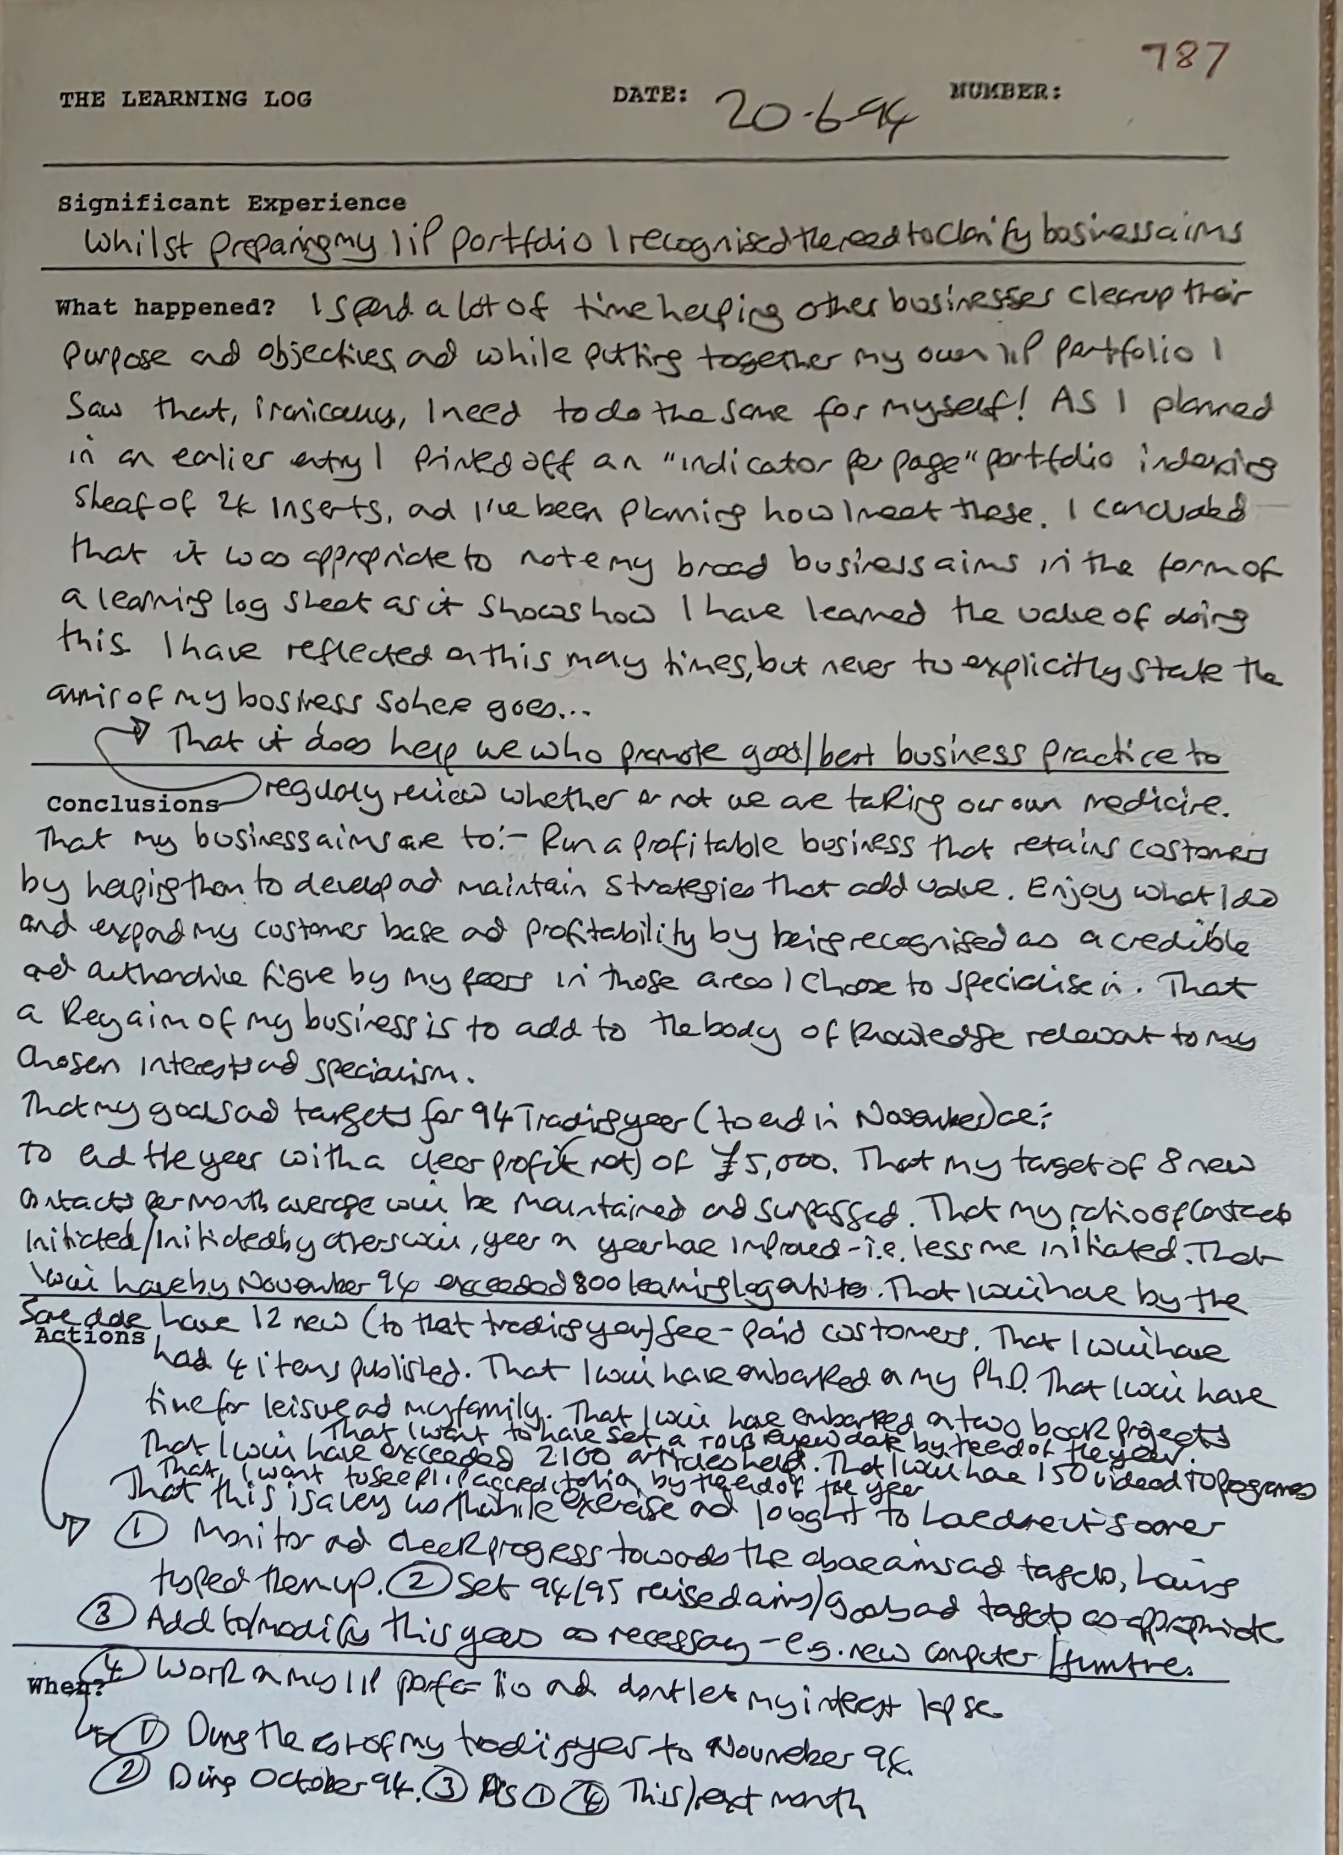 787
THE LEARNING LOG DATE: 20.6.94 NUMBER:
Significant Experience
Whilst preparing my IiP portfolio I recognised the need to clarify business aims
What happened? I spend a lot of time helping other businesses clear up their
purpose and objectives, and while putting together my own IiP portfolio I
saw that, ironically, I need to do the same for myself! As I planned
in an earlier entry I printed off an "indicator per page" portfolio indexing
sheaf of 24 inserts, and I've been planning how I meet these. I concluded
that it was appropriate to note my broad business aims in the form of
a learning log sheet as it shows how I have learned the value of doing
this. I have reflected on this many times, but never to explicitly state the
aims of my business so here goes...
That it does help we who promote good/best business practice to
Conclusions regularly review whether or not we are taking our own medicine.
That my business aims are to:- Run a profitable business that retains customers
by helping them to develop and maintain strategies that add value. Enjoy what I do
and expand my customer base and profitability by being recognised as a credible
and authoritative figure by my peers in those areas I choose to specialise in. That
a key aim of my business is to add to the body of knowledge relevant to my
chosen interests and specialism.
That my goals and targets for 94 Trading year (to end in November) are:
To end the year with a clear profit (net) of £5,000. That my target of 8 new
contacts per month average will be maintained and surpassed. That my ratio of contacts
initiated/initiated by others will, year on year have improved - i.e. less me initiated. That
I will have by November 94 exceeded 800 learning log entries. That I will have by the
same date have 12 new (to that trading year) fee-paid customers. That I will have
Actions had 4 items published. That I will have embarked on my PhD. That I will have
time for leisure and my family. That I will have embarked on two book projects
That I want to have set a review date by the end of the year.
That I will have exceeded 2100 articles held. That I will have 150 videoed TV programmes
That, I want to see IiP accreditation by the end of the year
That this is a very worthwhile exercise and I ought to have done it sooner
① Monitor and check progress towards the above aims and targets, having
typed them up. ② Set 94/95 revised aims/goals and targets as appropriate
③ Add to/modify this years as necessary - e.g. new computer/furniture.
④ Work on my IiP portfolio and don't let my interest lapse
When?
① During the rest of my trading year to November 94.
② During October 94. ③ As ① ④ This/next month